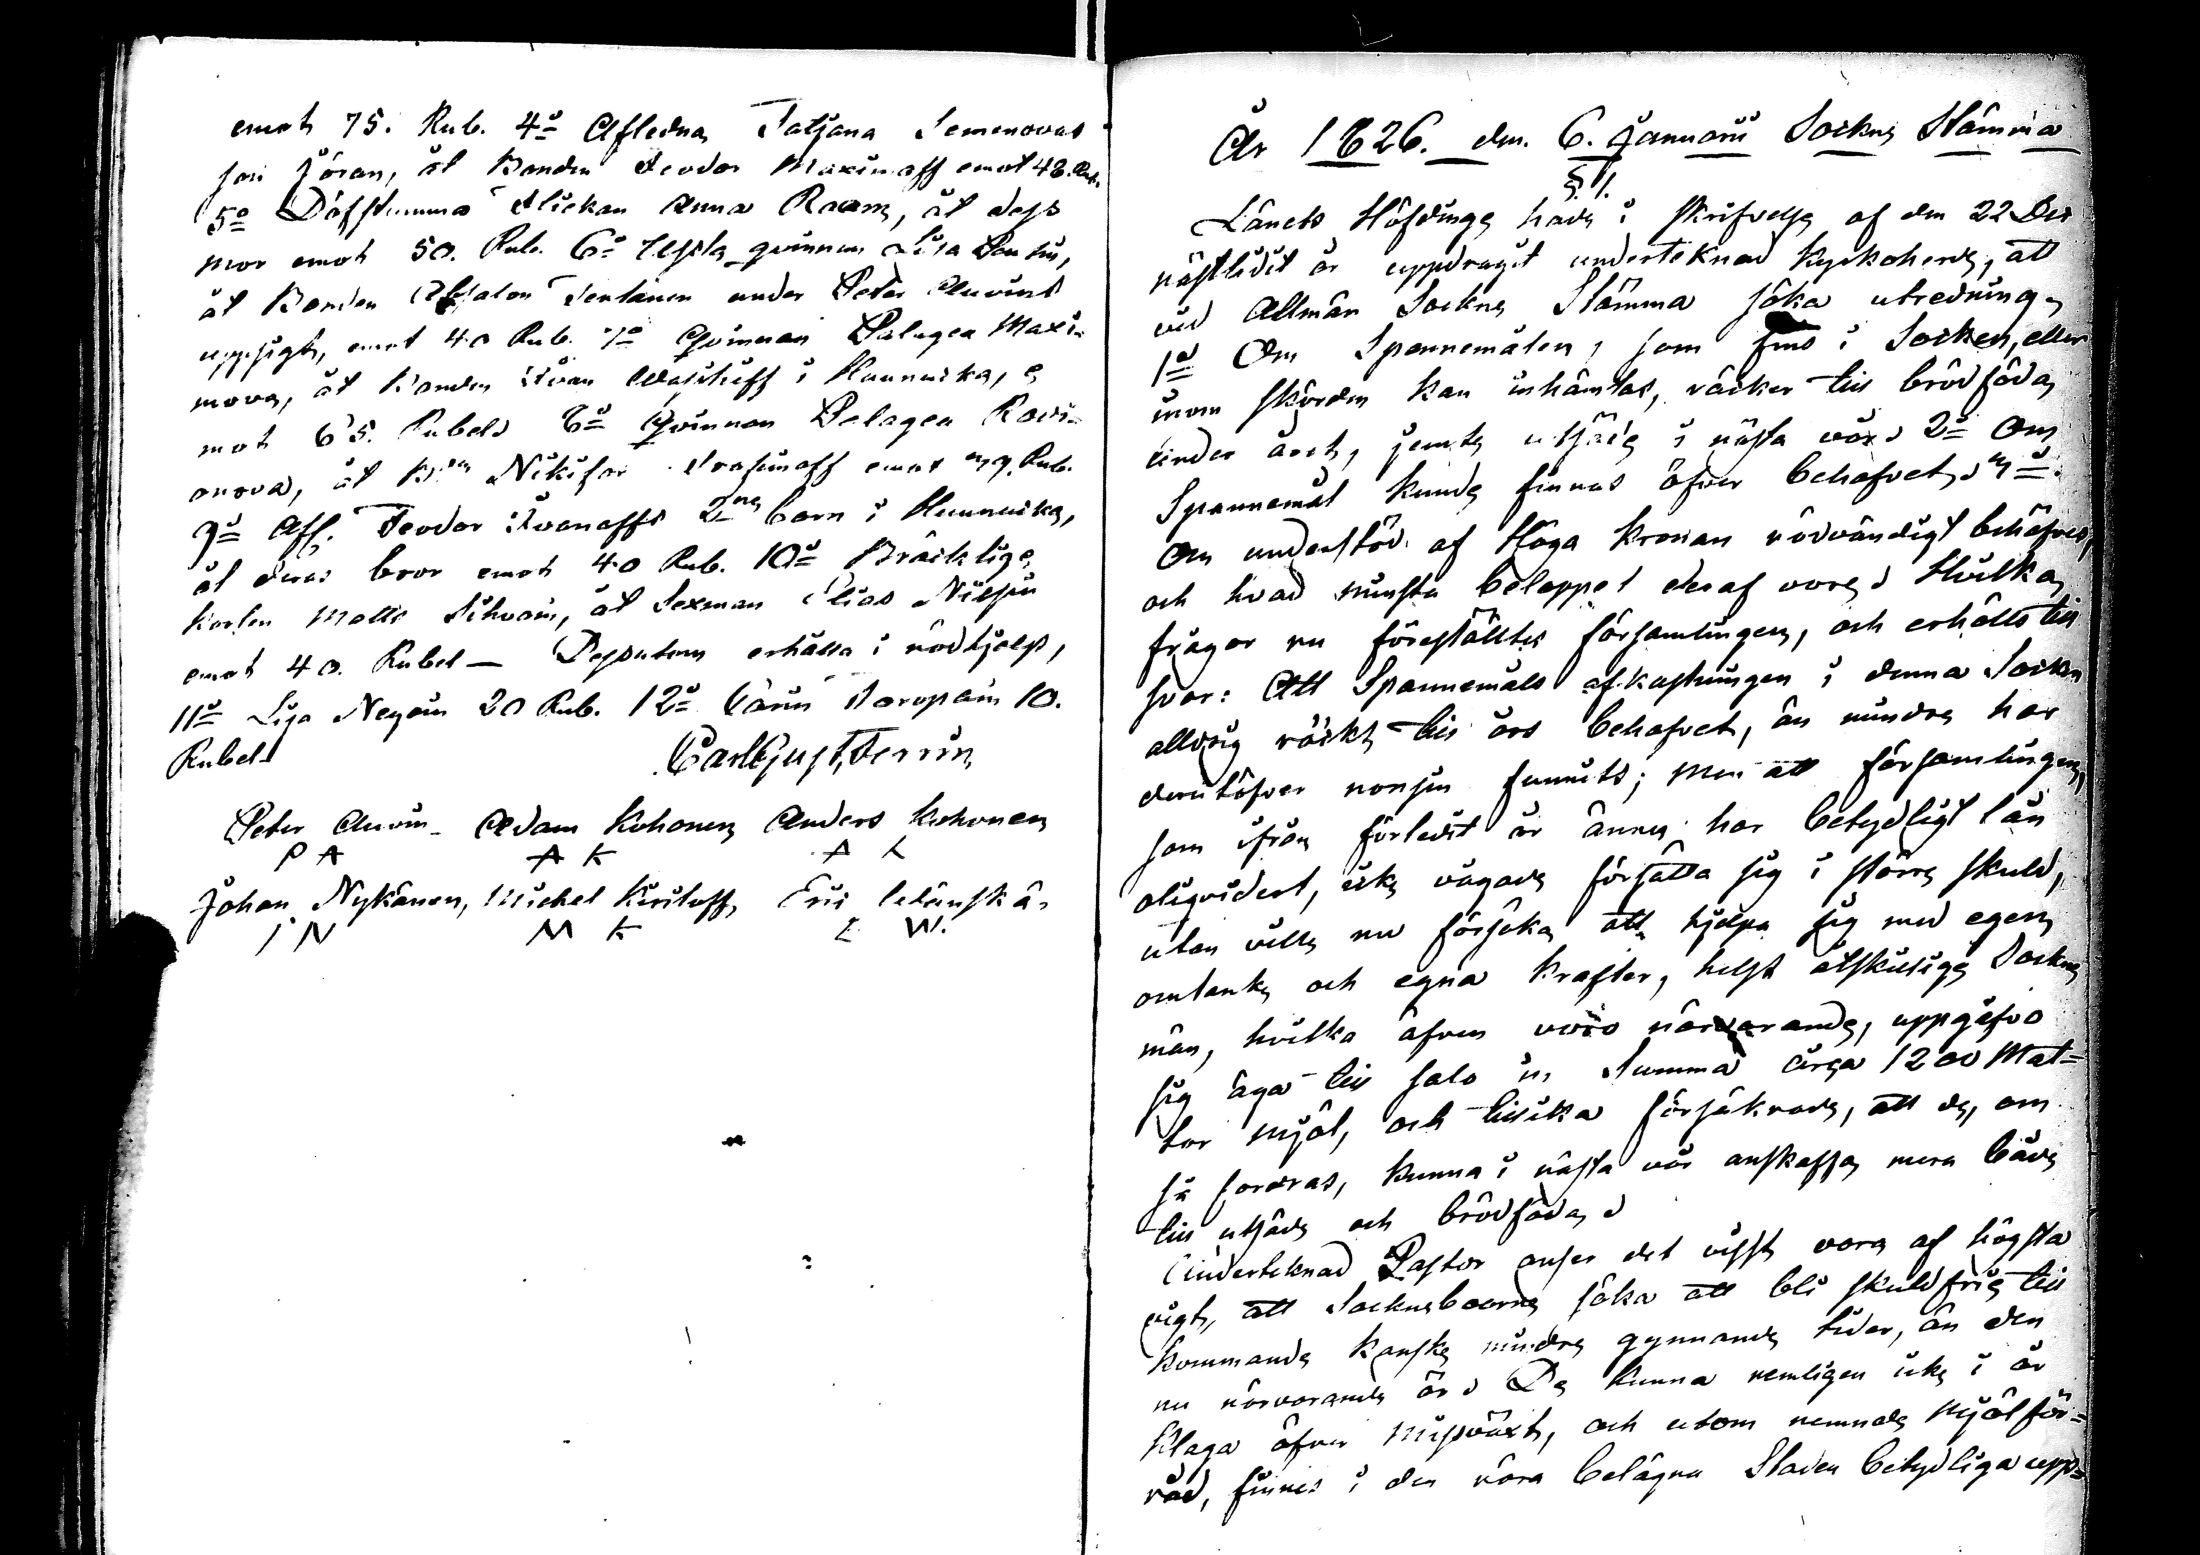 emot 75. Rub. 4:o Afledna Tatjana Semenovas
son Jöran, åt Bonden Feodor Maximoff emot 48. Rub.
5:o Döfstumma Flickan Anna Raam, åt dess
mor emot 50. Rub. 6:o Usla qvinnan Lisa Pausu,
åt Bonden Absalon Tentäinen under Peter Auvins
uppsigt, emot 40 Rub. 7:o Qvinnan Palagea Maxi-
mova, åt Bonden Ivan Wasilieff i Hunnuska, e
mot 65. Rubel. 8:o Qvinnan Pelagea Rodi-
onova, åt B:den Nikifor Trofimoff emot 49. Rub.
9:o Afl. Feodor Ivanoffs 2:ne barn i Hunnuska,
åt deras bror emot 40 Rub. 10:o Bräcklige
Karlen Matts Sihvoin, åt Sexman Elias Nissin
emot 40. Rubel — Dessutom erhålla i nödhjelp,
11:o Lisa Neyoin 20 Rub. 12:o Carin Toropain 10.
Rubel.
Carl Gust. Ferrin
Peter Auvin Adam Kohonen Anders Kohonen
P A A K A K
Johan Nykänen, Michel Kiriloff, Eric
I N M K E W.
År 1826. den 6. Januarii Sockne Stämma
§ 1.
Länets Höfdinge hade i skrifvelse af den 22 Dec
nästlidit år uppdragit undertecknad Kyrkoherde, att
vid Allmän Sockne Stämma söka utredning,
1:o Om Spannemålen, som fins i Socken, eller
inom skörden kan inhämtas, räcker till brödföda
under året, jemte utsäde i nästa vår. 2:o Om
Spannemål kunde finnas öfver behofvet. 3:o
Om understöd af Höga Kronan nödvändigt behöfves,
och hvad minsta beloppet deraf vore. Hvilka
frågor nu föreställtes församlingen, och erhölls till
svar: Att Spannemåls afkastningen i denna Socken
alldrig räckt till års behofvet, än mindre har
derutöfver nonsin funnits; men att församlingen,
som ifrån förledit år ännu har betydligt lån
oliqvidert, icke vågade försätta sig i större skuld,
utan ville nu försöka att hjelpa sig med egen
omtanke och egna krafter, helst åtskillige Sockne
män, hvilka äfven voro närvarande, uppgåfvo
sig äga till salo in Summa circa 1200 Mat-
tor mjöl, och tillika försäkrade, att de, om
så fordras, kunna i nästa vår anskaffa mera både
till utsäde och brödföda.
Undertecknad Pastor anser det visst vara af högsta
vigt, att Socknebourne söka att bli skuldfrie till
kommande kanske mindre gynnande tider, än den
nu närvarande är. De kunna nemligen icke i år
klaga öfver missväxt, och utom nemnde mjölför-
råd, finnes i den nära belägna Staden betydliga upp-